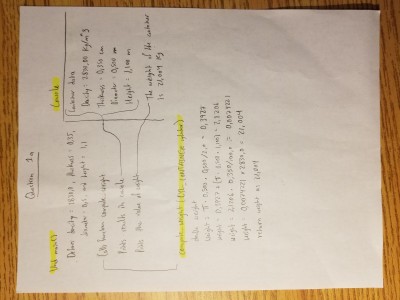 Question 1a
Void main()
Define density: 2830,0, thickness: 0,35,
diameter: 0,5 and height: 1,1
Calls function compute-weight
Prints results to console
Prints the value of weight
Console
Container data
Density: 2830,00 Kg/m^3
Thickness: 0,350 cm
Diameter: 0,500 m
Height: 1,100 m
The weight of the container
is 21,009 Kg
compute-weight
double weight
weight = π · 0,500 · 0,500/2,0 = 0,3927
weight = 0,3927 + (π · 0,500 · 1,100) = 2,1206
weight = 2,1206 · 0,350/100,0 = 0,007422
weight = 0,007422 · 2830,0 = 21,004
return weight